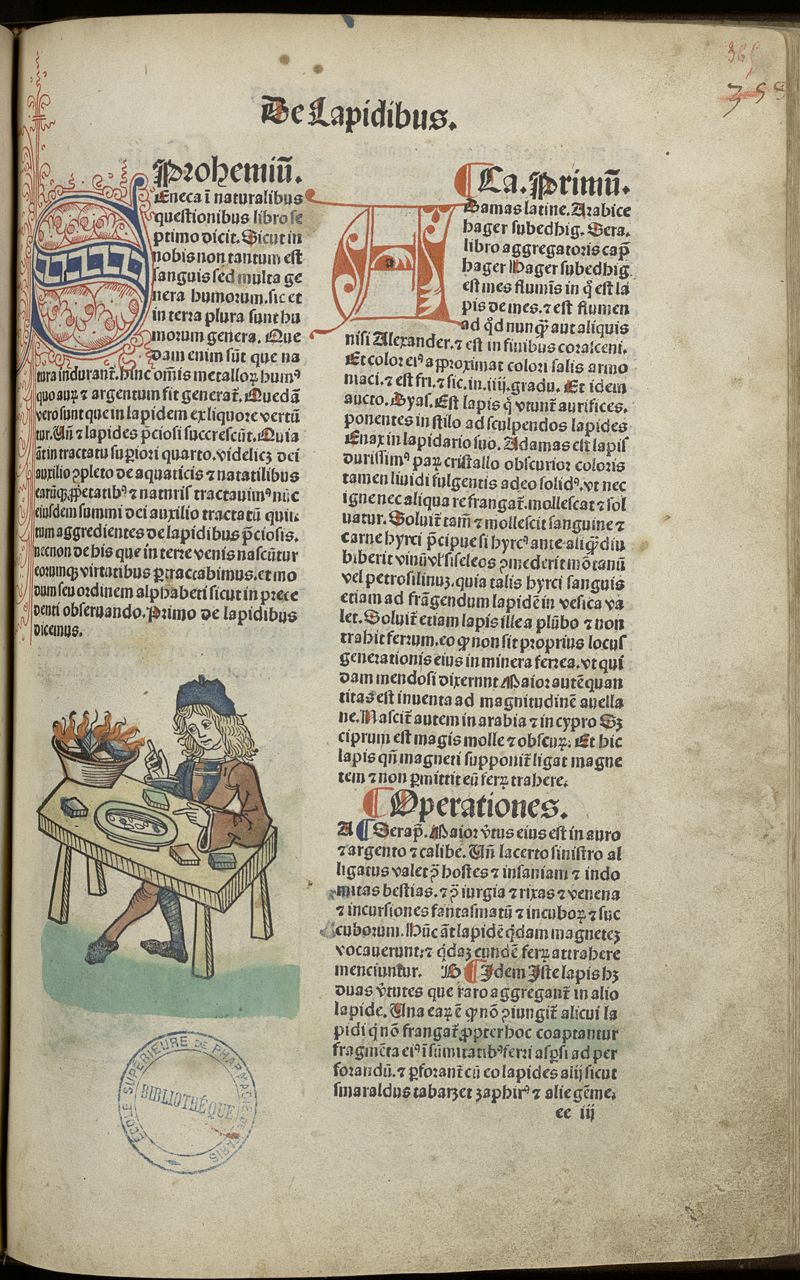 369
398
De Lapidibus.
Prohemiū.
Seneca ī naturalibus
questionibus libro se
ptimo dicit. Sicut in
nobis non tantum est
sanguis sed multa ge
nera humorum. sic et
in terra plura sunt hu
morum genera. Que
dam enim sūt que na
tura indurant᷑. hinc om̄is metalloꝝ humꝰ
quo auꝝ ⁊ argentum fit generat᷑. Quedā
vero sunt que in lapidem ex liquore vertū
tur. Uñ ⁊ lapides p̄ciosi succrescūt. Quia
āt in tractatu suꝑiori quarto. videlicꝫ dei
auxilio ꝯpleto de aquaticis ⁊ natatilibus
earūqꝫ ꝓpetatibꝰ ⁊ naturis tractauimꝰ nūc
eiusdem summi dei auxilio tractatū quin
tum aggredientes de lapidibus p̄ciosis.
necnon de his que in terre venis nascūtur
eorumqꝫ virtutibus ꝑtractabimus. et mo
dum seu ordinem alphabeti sicut in prece
denti obseruando. Primo de lapidibus
dicemus.
Ca. Primū.
Adamas latine. Arabice
hager subedhig. Sera.
libro aggregatoris cap̄
hager Hager subedhig.
est mes flumīs in q̄ est la
pis de mes. ⁊ est flumen
ad qd̄ nunqꝫ aut aliquis
nisi Alexander. ⁊ est in finibus coralceni.
Et color eiꝰ approximat colori salis armo
niaci. ⁊ est fri. ⁊ sic. in. iiij. gradu. Et idem
aucto. Dyas. Est lapis q̄ vtunt᷑ aurifices.
ponentes in stilo ad sculpendos lapides
Enax in lapidario suo. Adamas est lapis
durissimꝰ paꝝ cristallo obscurior coloris
tamen liuidi fulgentis adeo solidꝰ. vt nec
igne nec aliqua re frangat᷑. mollescat ⁊ sol
uatur. Soluit᷑ tam̄ ⁊ mollescit sanguine ⁊
carne hyrci p̄cipue si hyrcꝰ ante aliqꝫdiu
biberit vinū vl̓ siseleos ꝯmederit mōtanū
vel petrosilinuꝫ. quia talis hyrci sanguis
etiam ad frāgendum lapidē in vesica va
let. Soluit᷑ etiam lapis ille a plūbo ⁊ non
trahit ferrum. eo ꝙ non sit proprius locus
generationis eius in minera ferrea. vt qui
dam mendosi dixerunt Maior autē quan
titas est inuenta ad magnitudinē auella
ne. Nascit᷑ autem in arabia ⁊ in cypro Sꝫ
ciprum est magis molle ⁊ obscuꝝ. Et hic
lapis qn̄ magneti supponit᷑ ligat magne
tem ⁊ non ꝑmittit eū ferꝝ trahere.
Operationes.
A Serap̄. Maior v̓tus eius est in auro
⁊ argento ⁊ calibe. Uñ lacerto sinistro al
ligatus valet ꝓ hostes ⁊ insaniam ⁊ indo
mitas bestias. ⁊ ꝓ iurgia ⁊ rixas ⁊ venena
⁊ incursiones fantasmatū ⁊ incuboꝝ ⁊ suc
cuborum. Hūc āt lapidē q̄dam magneteꝫ
vocauerunt: ⁊ q̄daꝫ eundē ferꝝ attrahere
menciuntur. B Idem Iste lapis hꝫ
duas v̓tutes que raro aggregant᷑ in alio
lapide. Una eaꝝ ē ꝙ nō ꝯiungit᷑ alicui la
pidi q̄ nō frangat᷑. ꝓpter hoc coaptantur
fragmēta eiꝰ ī sūmitatibꝰ ferri aspersi ad per
forandū. ⁊ ꝑforant᷑ cū eo lapides alij sicut
smaraldus tabarzet zaphirꝰ ⁊ alie gēme.
ee iij
ÉCOLE SUPÉRIEURE DE PHARMACIE DE PARIS
BIBLIOTHÉQUE